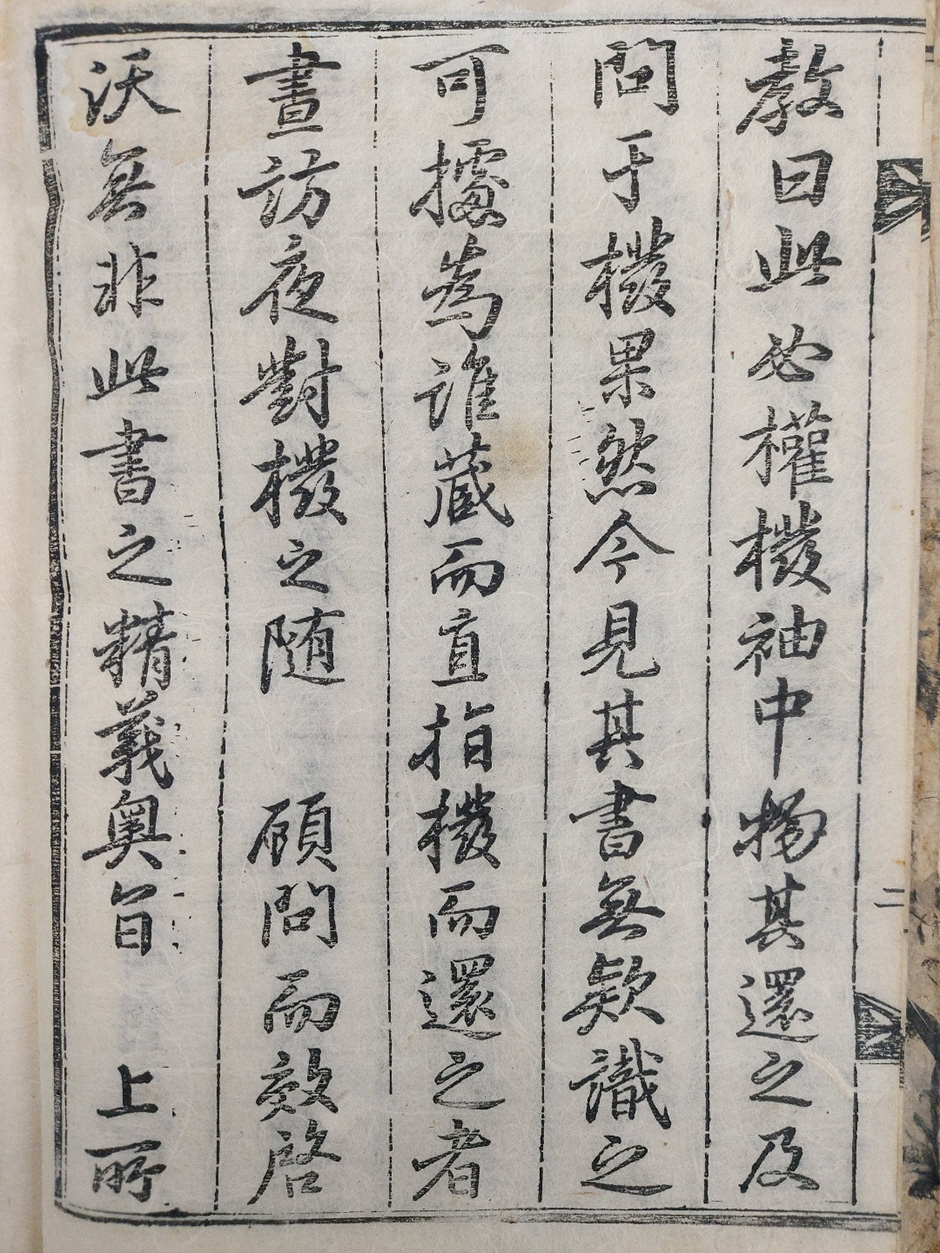 教曰此必權橃袖中物其還之及
問于橃果然今見其書無欵識之
可據為誰蔵而直指橃而還之者
晝訪夜對橃之随　顧問而效啓
沃無非此書之精義奥旨　上所
二